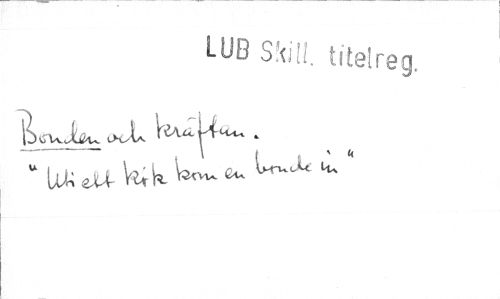 LUB Skill. titelreg.
Bonden och kräftan.
"Uti ett kök kom en bonde in"